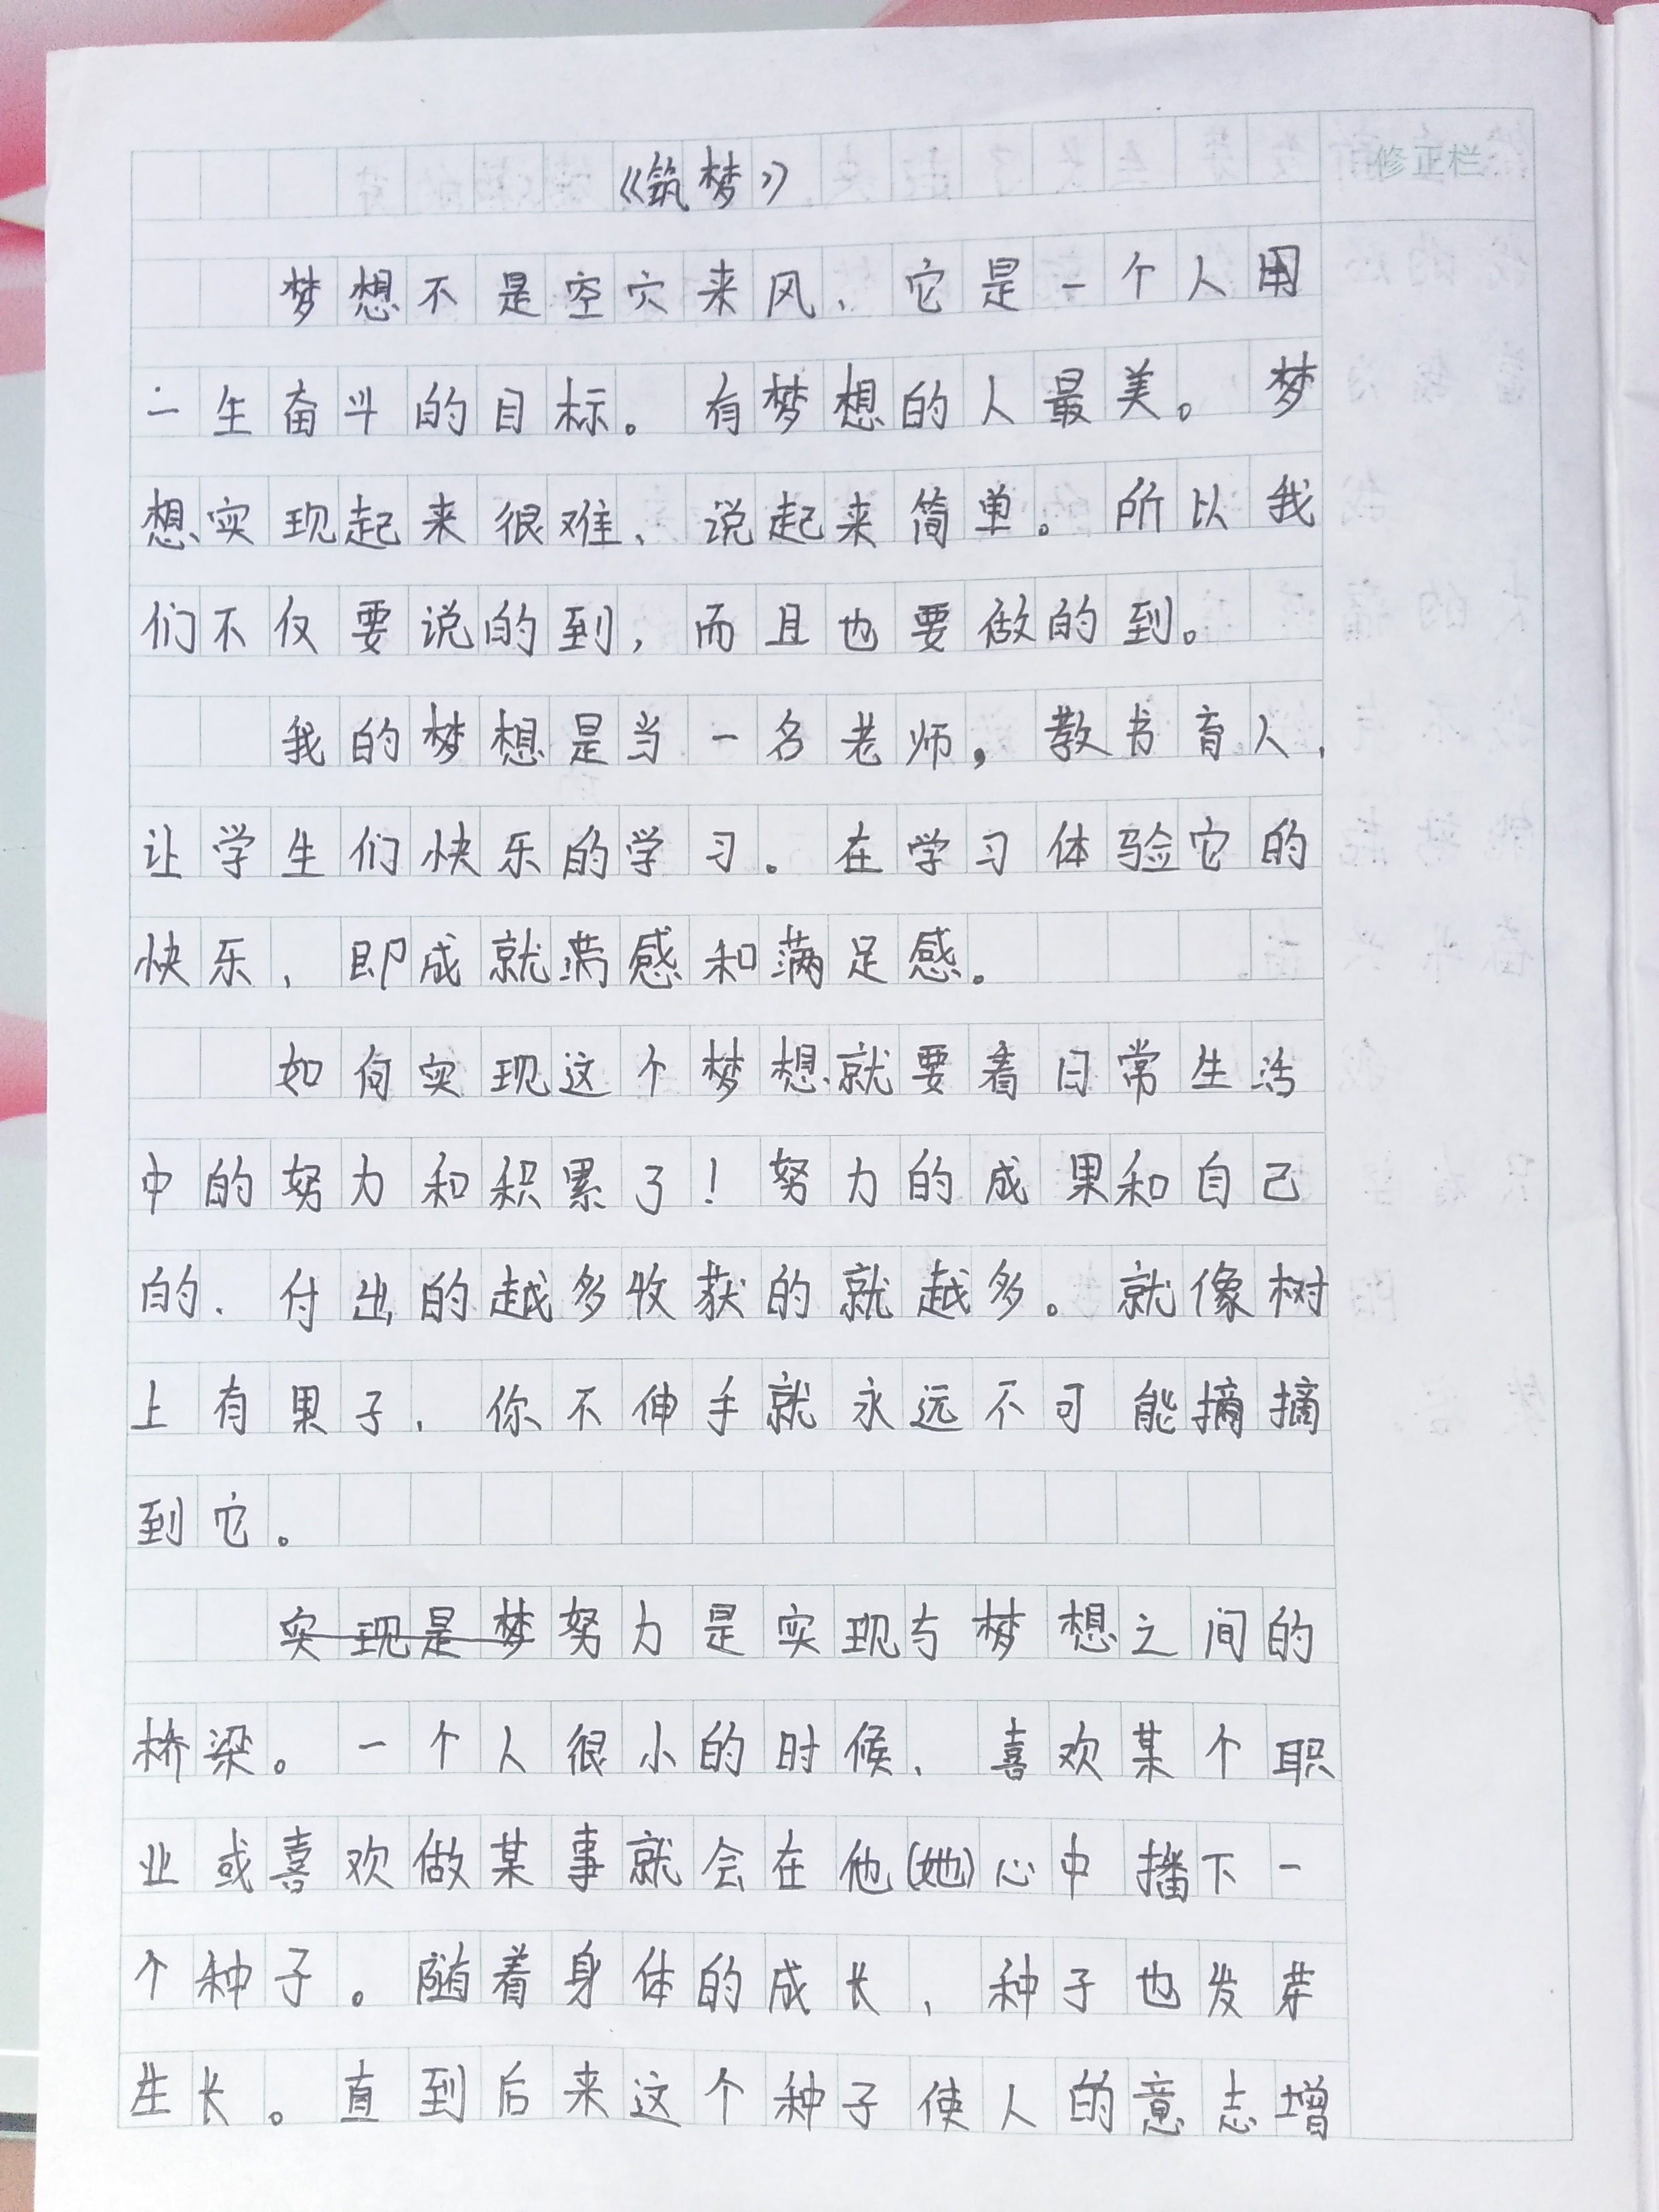 修正栏
《筑梦》
梦想不是空穴来风、它是一个人用
一生奋斗的目标。有梦想的人最美。梦
想实现起来很难、说起来简单。所以我
们不仅要说的到，而且也要做的到。
我的梦想是当一名老师，教书育人、
让学生们快乐的学习。在学习体验它的
快乐、即成就满感和满足感。
如何实现这个梦想就要看日常生活
中的努力和积累了！努力的成果和自己
的、付出的越多收获的就越多。就像树
上有果子、你不伸手就永远不可能摘摘
到它。
实现是梦努力是实现与梦想之间的
桥梁。一个人很小的时候、喜欢某个职
业或喜欢做某事就会在他(她)心中播下一
个种子。随着身体的成长、种子也发芽
生长。直到后来这个种子使人的意志增